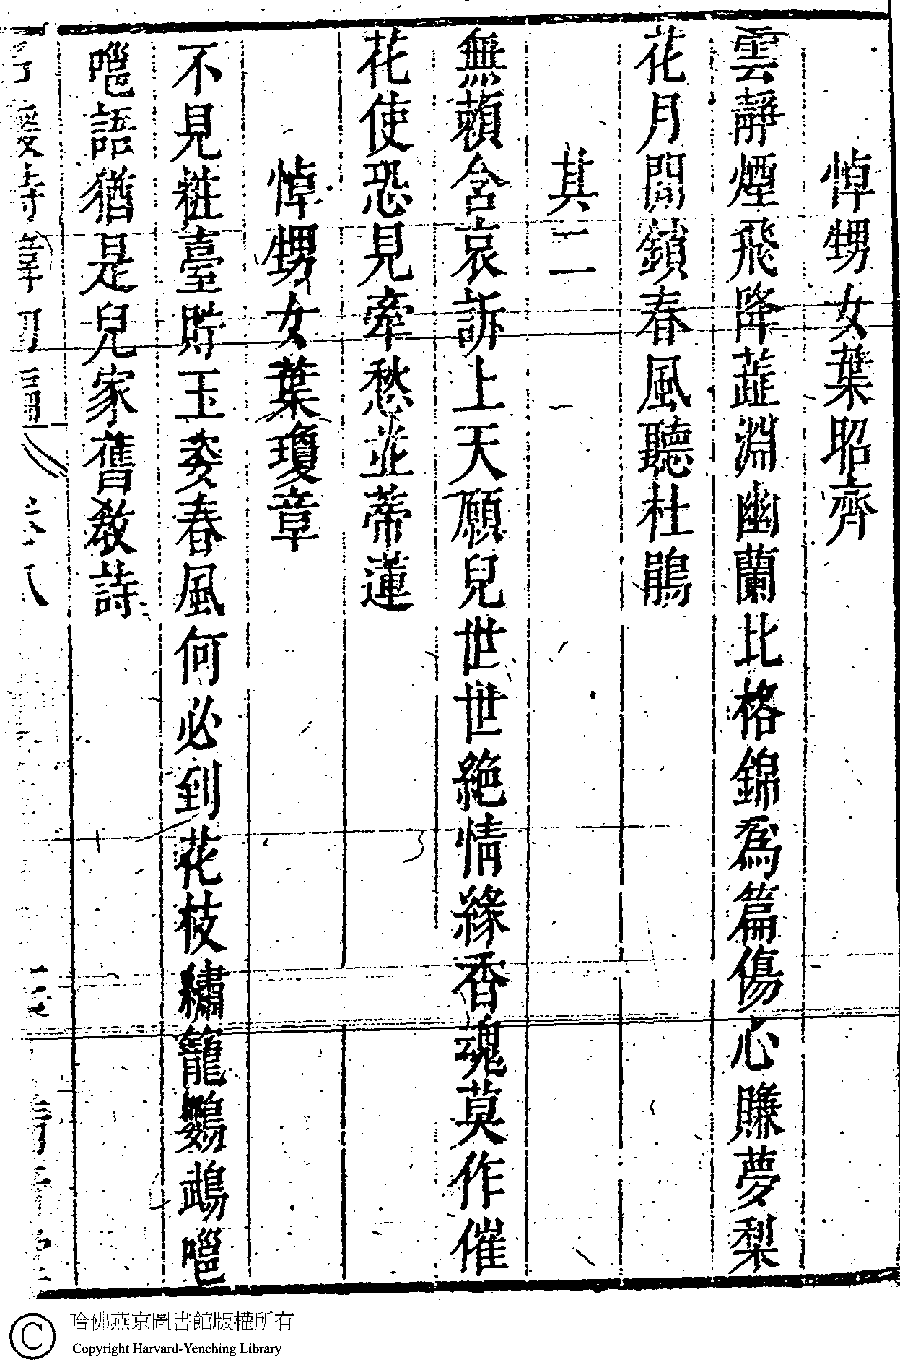 悼甥女葉昭齊
雲靜煙飛降蕋淵幽蘭比格錦爲篇傷心賺夢梨
花月閒鎖春風聽杜鵑
其二
無賴含哀訴上天願兒世世絶情緣香魂莫作催
花使恐見牽愁並蒂蓮
悼甥女葉瓊章
不見粧臺貯玉姿春風何必到花枝繡籠鸚鵡嗈
嗈語猶是兒家舊教詩
哈佛燕京圖書館版權所有
Copyright Harvard-Yenching Library